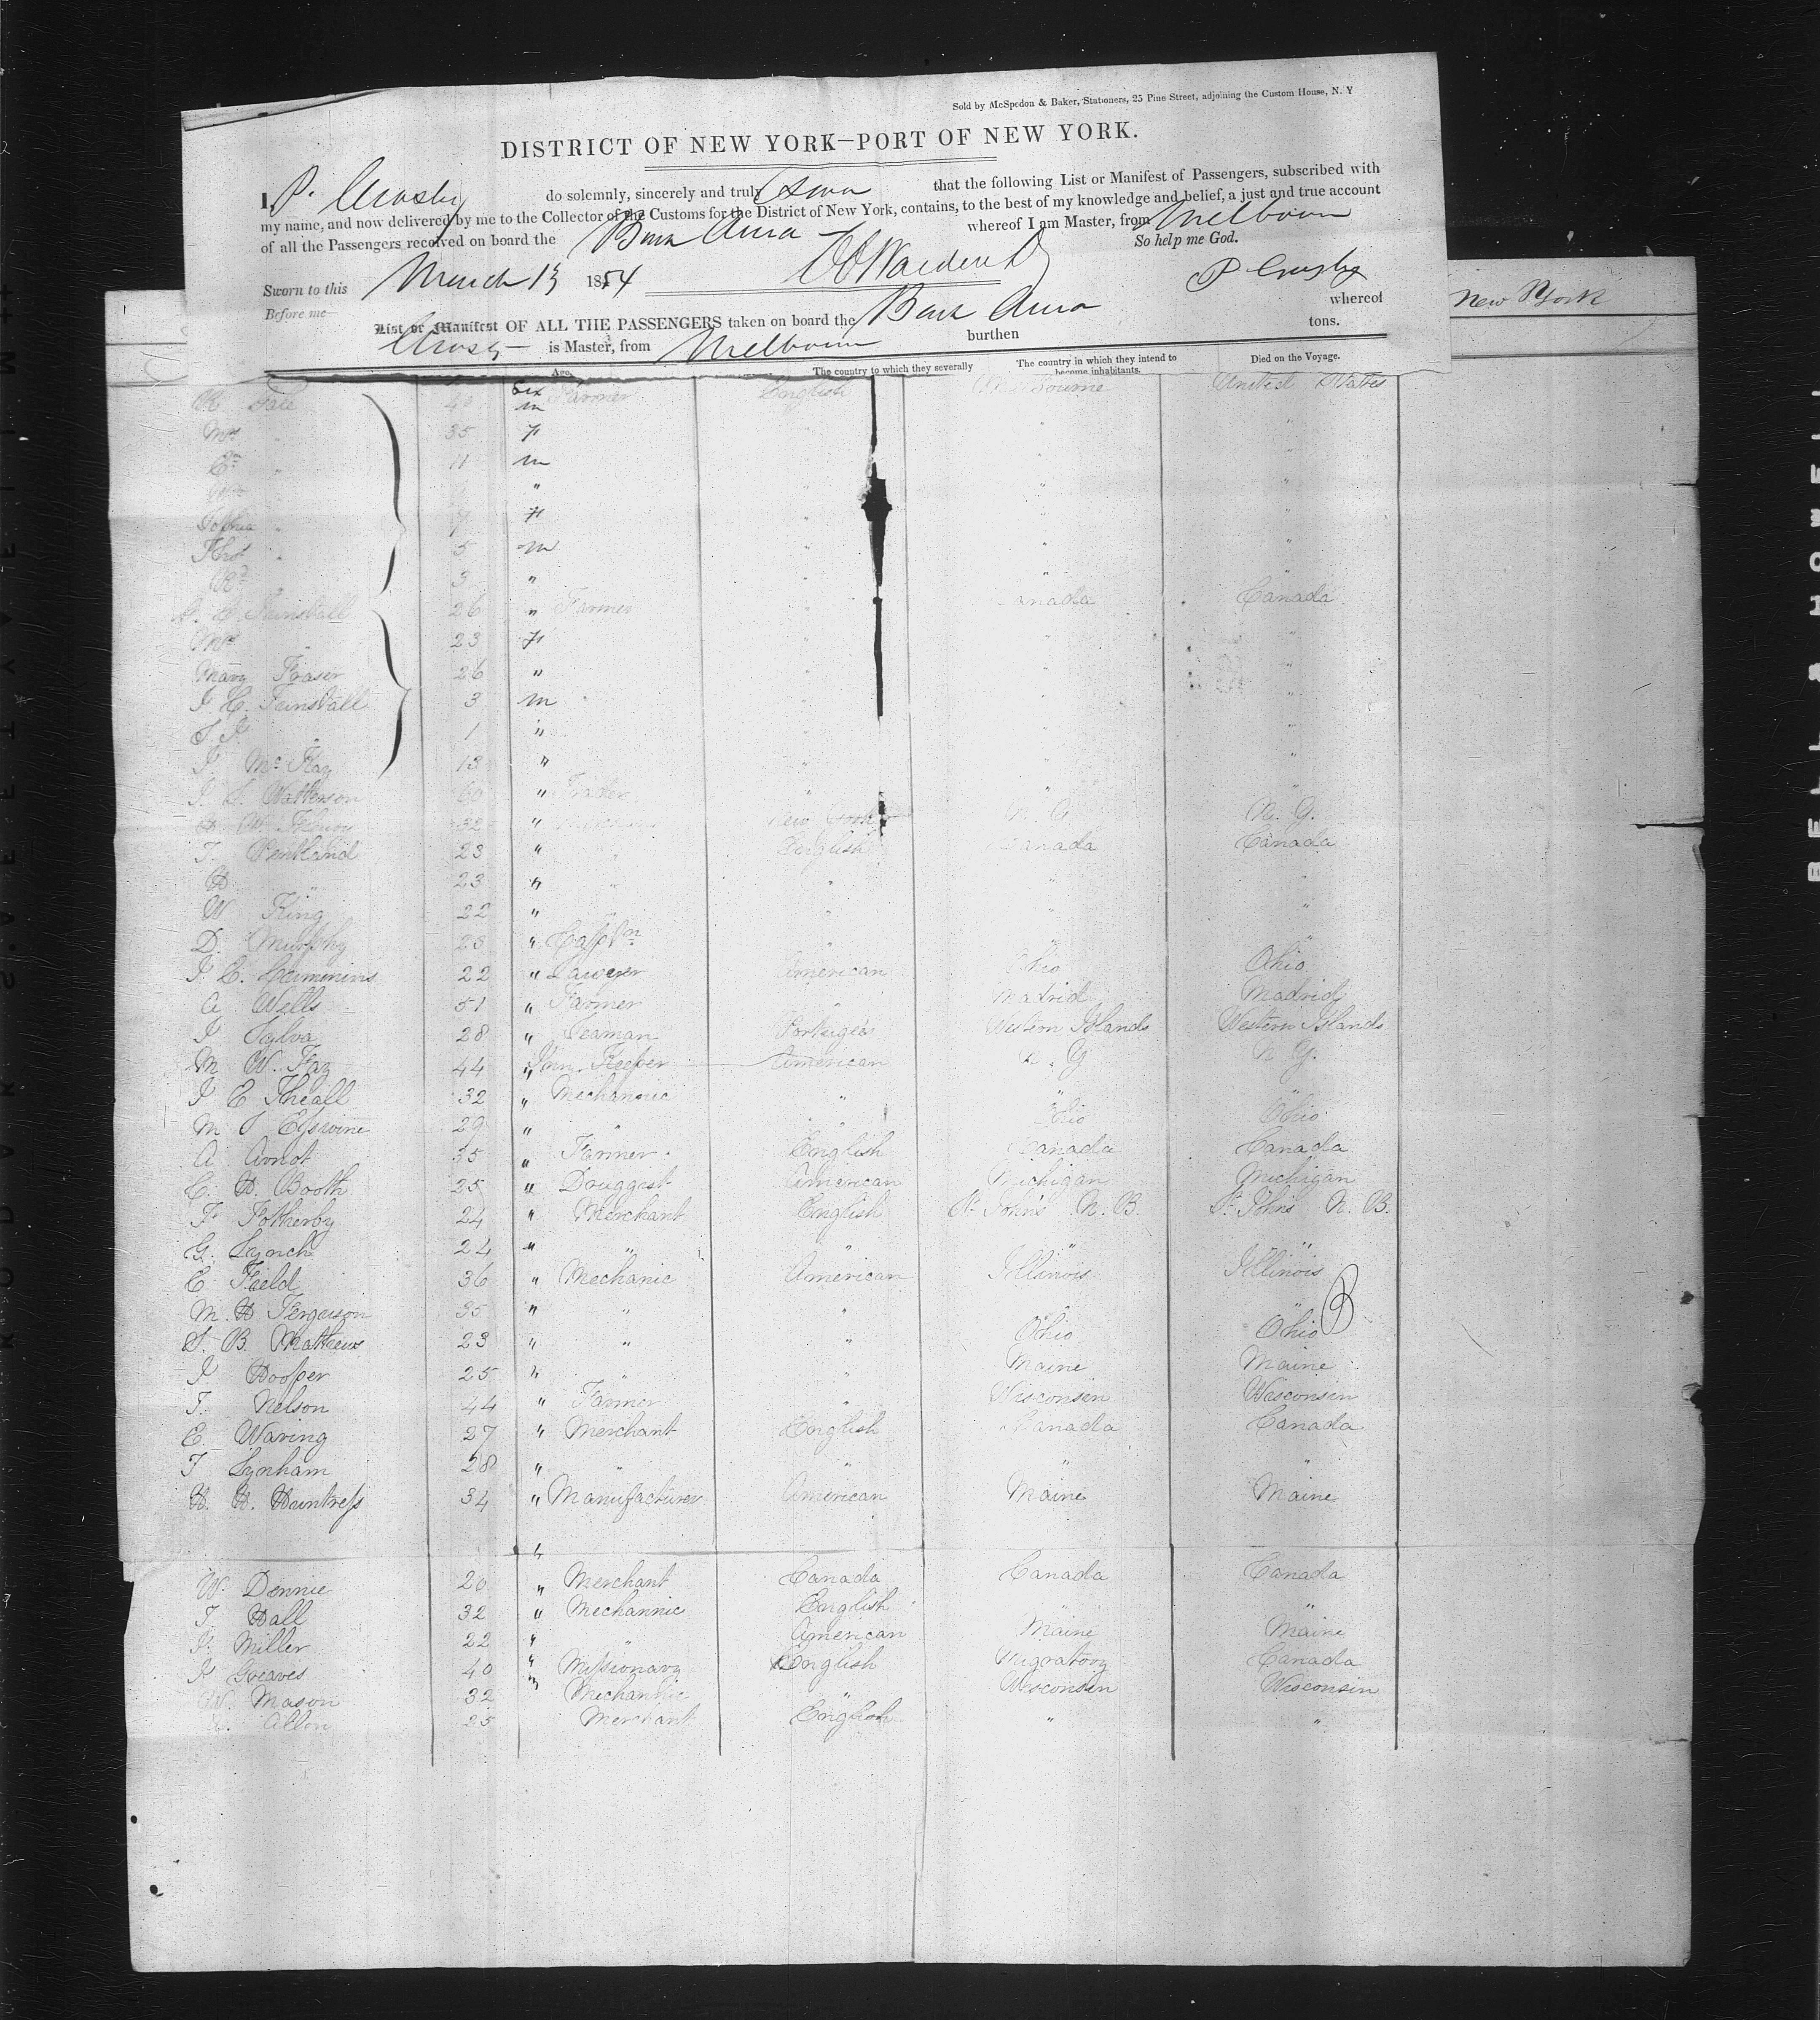 Sold by McSpedon & Baker, Stationers, 25 Pine Street, adjoining the Custom House, N. Y
DISTRICT OF NEW YORK—PORT OF NEW YORK.
I, P. Crosby do solemnly, sincerely and truly that the following List or Manifest of Passengers, subscribed with
my name, and now delivered by me to the Collector of the Customs for the District of New York, contains, to the best of my knowledge and belief, a just and true account
of all the Passengers received on board the Bark whereof I am Master, from Melbourn
So help me God.
Sworn to this March 13 1854 P Crosby
Before me
List or Manifest OF ALL THE PASSENGERS taken on board the Bark whereof
Crosby is Master, from Melbourn burthen tons.
New York
Age. The country to which they severally The country in which they intend to become inhabitants. Died on the Voyage.
Sex
40 m Farmer English United States
Mrs " 35 F " " "
11 m " " "
" " " " "
Sophia " 7 F " " "
Thos " 5 m " " "
3 " " " "
26 " Farmer " Canada Canada
Mrs " 23 F " " "
Mary Fraser 26 " " " "
3 m " " " "
1 " " " "
Mc Kay 13 " " " "
Watterson 60 " Trader " " "
32 " New York N. Y.
T. Pentland 23 " " English Canada Canada
H " 23 " " " " "
W King 22 " " " " "
D. Murphy 23 " Capt'n " " "
J C. Cummins 22 " Lawyer American Ohio Ohio
A Wells 51 " Farmer " Madrid Madrid
J Sylva 28 " Seaman Portugees Western Islands Western Islands
M W. Fay 44 " Inn Keeper American N. Y N. Y.
J E Theall 32 " Mechannic " " "
M 29 " " " Ohio Ohio
A Arnot 35 " Farmer English Canada Canada
C. H. Booth 25 " Druggist American Michigan Michigan
F Fotherby 24 " Merchant English St Johns N. B. St Johns N. B.
G. Lynch 24 " " " " "
C Field 36 " Mechanic American Illinois Illinois
M. H Ferguson 35 " " " " "
B
S. B. Mathews 23 " " " Ohio Ohio
J Hooper 25 " " " Maine Maine
T. Nelson 44 " Farmer " Wisconsin Wisconsin
E. Waring 27 " Merchant English Canada Canada
T Lynham 28 " " " " "
H. H. Huntress 34 " Manufacturer American Maine Maine
"
W. Dennie 20 " Merchant Canada Canada Canada
T Hall 32 " Mechannic English " "
J. Miller 22 " " American Maine Maine
J Greaves 40 " Missionary English Migratory Canada
W. Mason 32 " Mechannic " Wisconsin Wisconsin
Allen 25 Merchant English " "
BELL & HOWELL